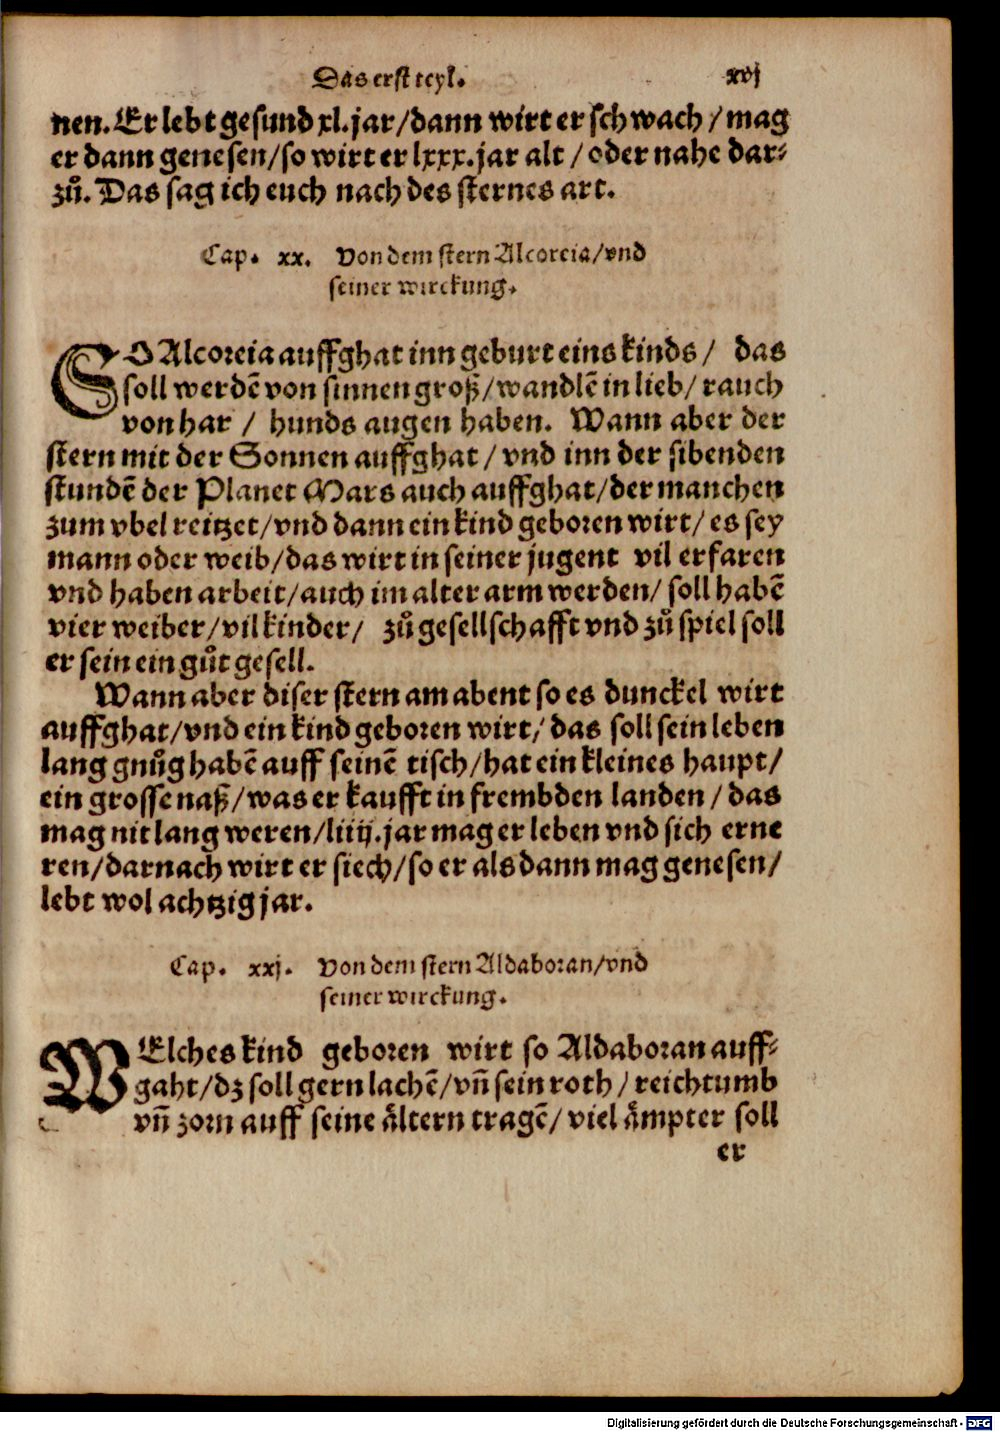 Das erst teyl. xvj
nen. Er lebt gesund xl. jar/dann wirt er schwach/mag
er dann genesen/so wirt er lxxx. jar alt/oder nahe dar⸗
zuͦ. Das sag ich euch nach des sternes art.
Cap. xx. Von dem stern Alcoreia/vnd
seiner wirckung.
SO Alcoreia auffghat inn geburt eins kinds/ das
soll werdē von sinnen groß/wandlē in lieb/rauch
von har/ hunds augen haben. Wann aber der
stern mit der Sonnen auffghat/vnd inn der sibenden
stundē der Planet Mars auch auffghat/der manchen
zum vbel reitzet/vnd dann ein kind geboren wirt/es sey
mann oder weib/das wirt in seiner jugent vil erfaren
vnd haben arbeit/auch im alter arm werden/soll habē
vier weiber/vil kinder/ zuͦ gesellschafft vnd zuͦ spiel soll
er sein ein guͦt gesell.
Wann aber diser stern am abent so es dunckel wirt
auffghat/vnd ein kind geboren wirt/das soll sein leben
lang gnuͦg habē auff seinē tisch/hat ein kleines haupt/
ein grosse naß/was er kaufft in frembden landen/das
mag nit lang weren/liiij. jar mag er leben vnd sich erne
ren/darnach wirt er siech/so er als dann mag genesen/
lebt wol achtzig jar.
Cap. xxj. Von dem stern Aldaboran/vnd
seiner wirckung.
WElches kind geboren wirt so Aldaboran auff⸗
gaht/dz soll gern lachē/vn̄ sein roth/reichtumb
vn̄ zorn auff seine aͤltern tragē/viel aͤmpter soll
er
Digitalisierung gefördert durch die Deutsche Forschungsgemeinschaft - DFG